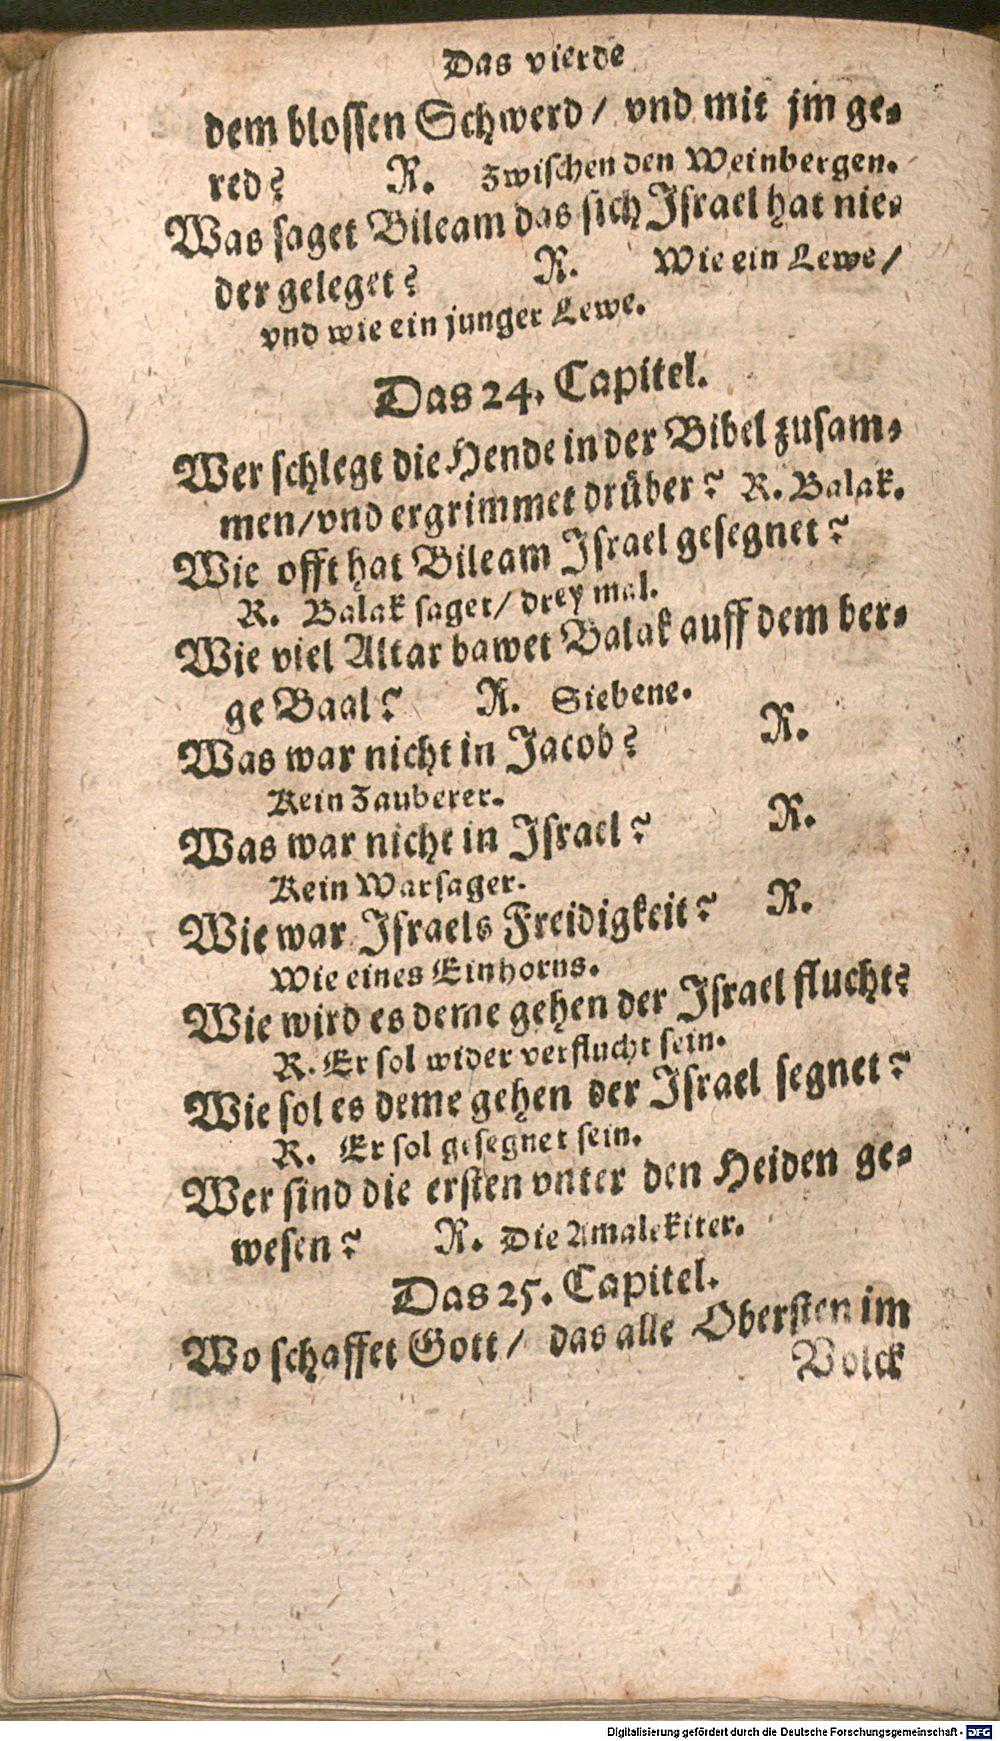 Das vierde
dem blossen Schwerd / vnd mit jm ge-
red? R. Zwischen den Weinbergen.
Was saget Bileam das sich Israel hat nie-
der geleget? R. Wie ein Lewe /
vnd wie ein junger Lewe.
Das 24. Capitel.
Wer schlegt die Hende in der Bibel zusam-
men / vnd ergrimmet drüber? R. Balak.
Wie offt hat Bileam Israel gesegnet?
R. Balak saget / drey mal.
Wie viel Altar bawet Balak auff dem ber-
ge Baal? R. Siebene.
Was war nicht in Jacob? R.
Kein Zauberer.
Was war nicht in Israel? R.
Kein Warsager.
Wie war Israels Freidigkeit? R.
Wie eines Einhorns.
Wie wird es deme gehen der Israel flucht?
R. Er sol wider verflucht sein.
Wie sol es deme gehen der Israel segnet?
R. Er sol gesegnet sein.
Wer sind die ersten vnter den Heiden ge-
wesen? R. Die Amalekiter.
Das 25. Capitel.
Wo schaffet Gott / das alle Obersten im
Volck
Digitalisierung gefördert durch die Deutsche Forschungsgemeinschaft - DFG